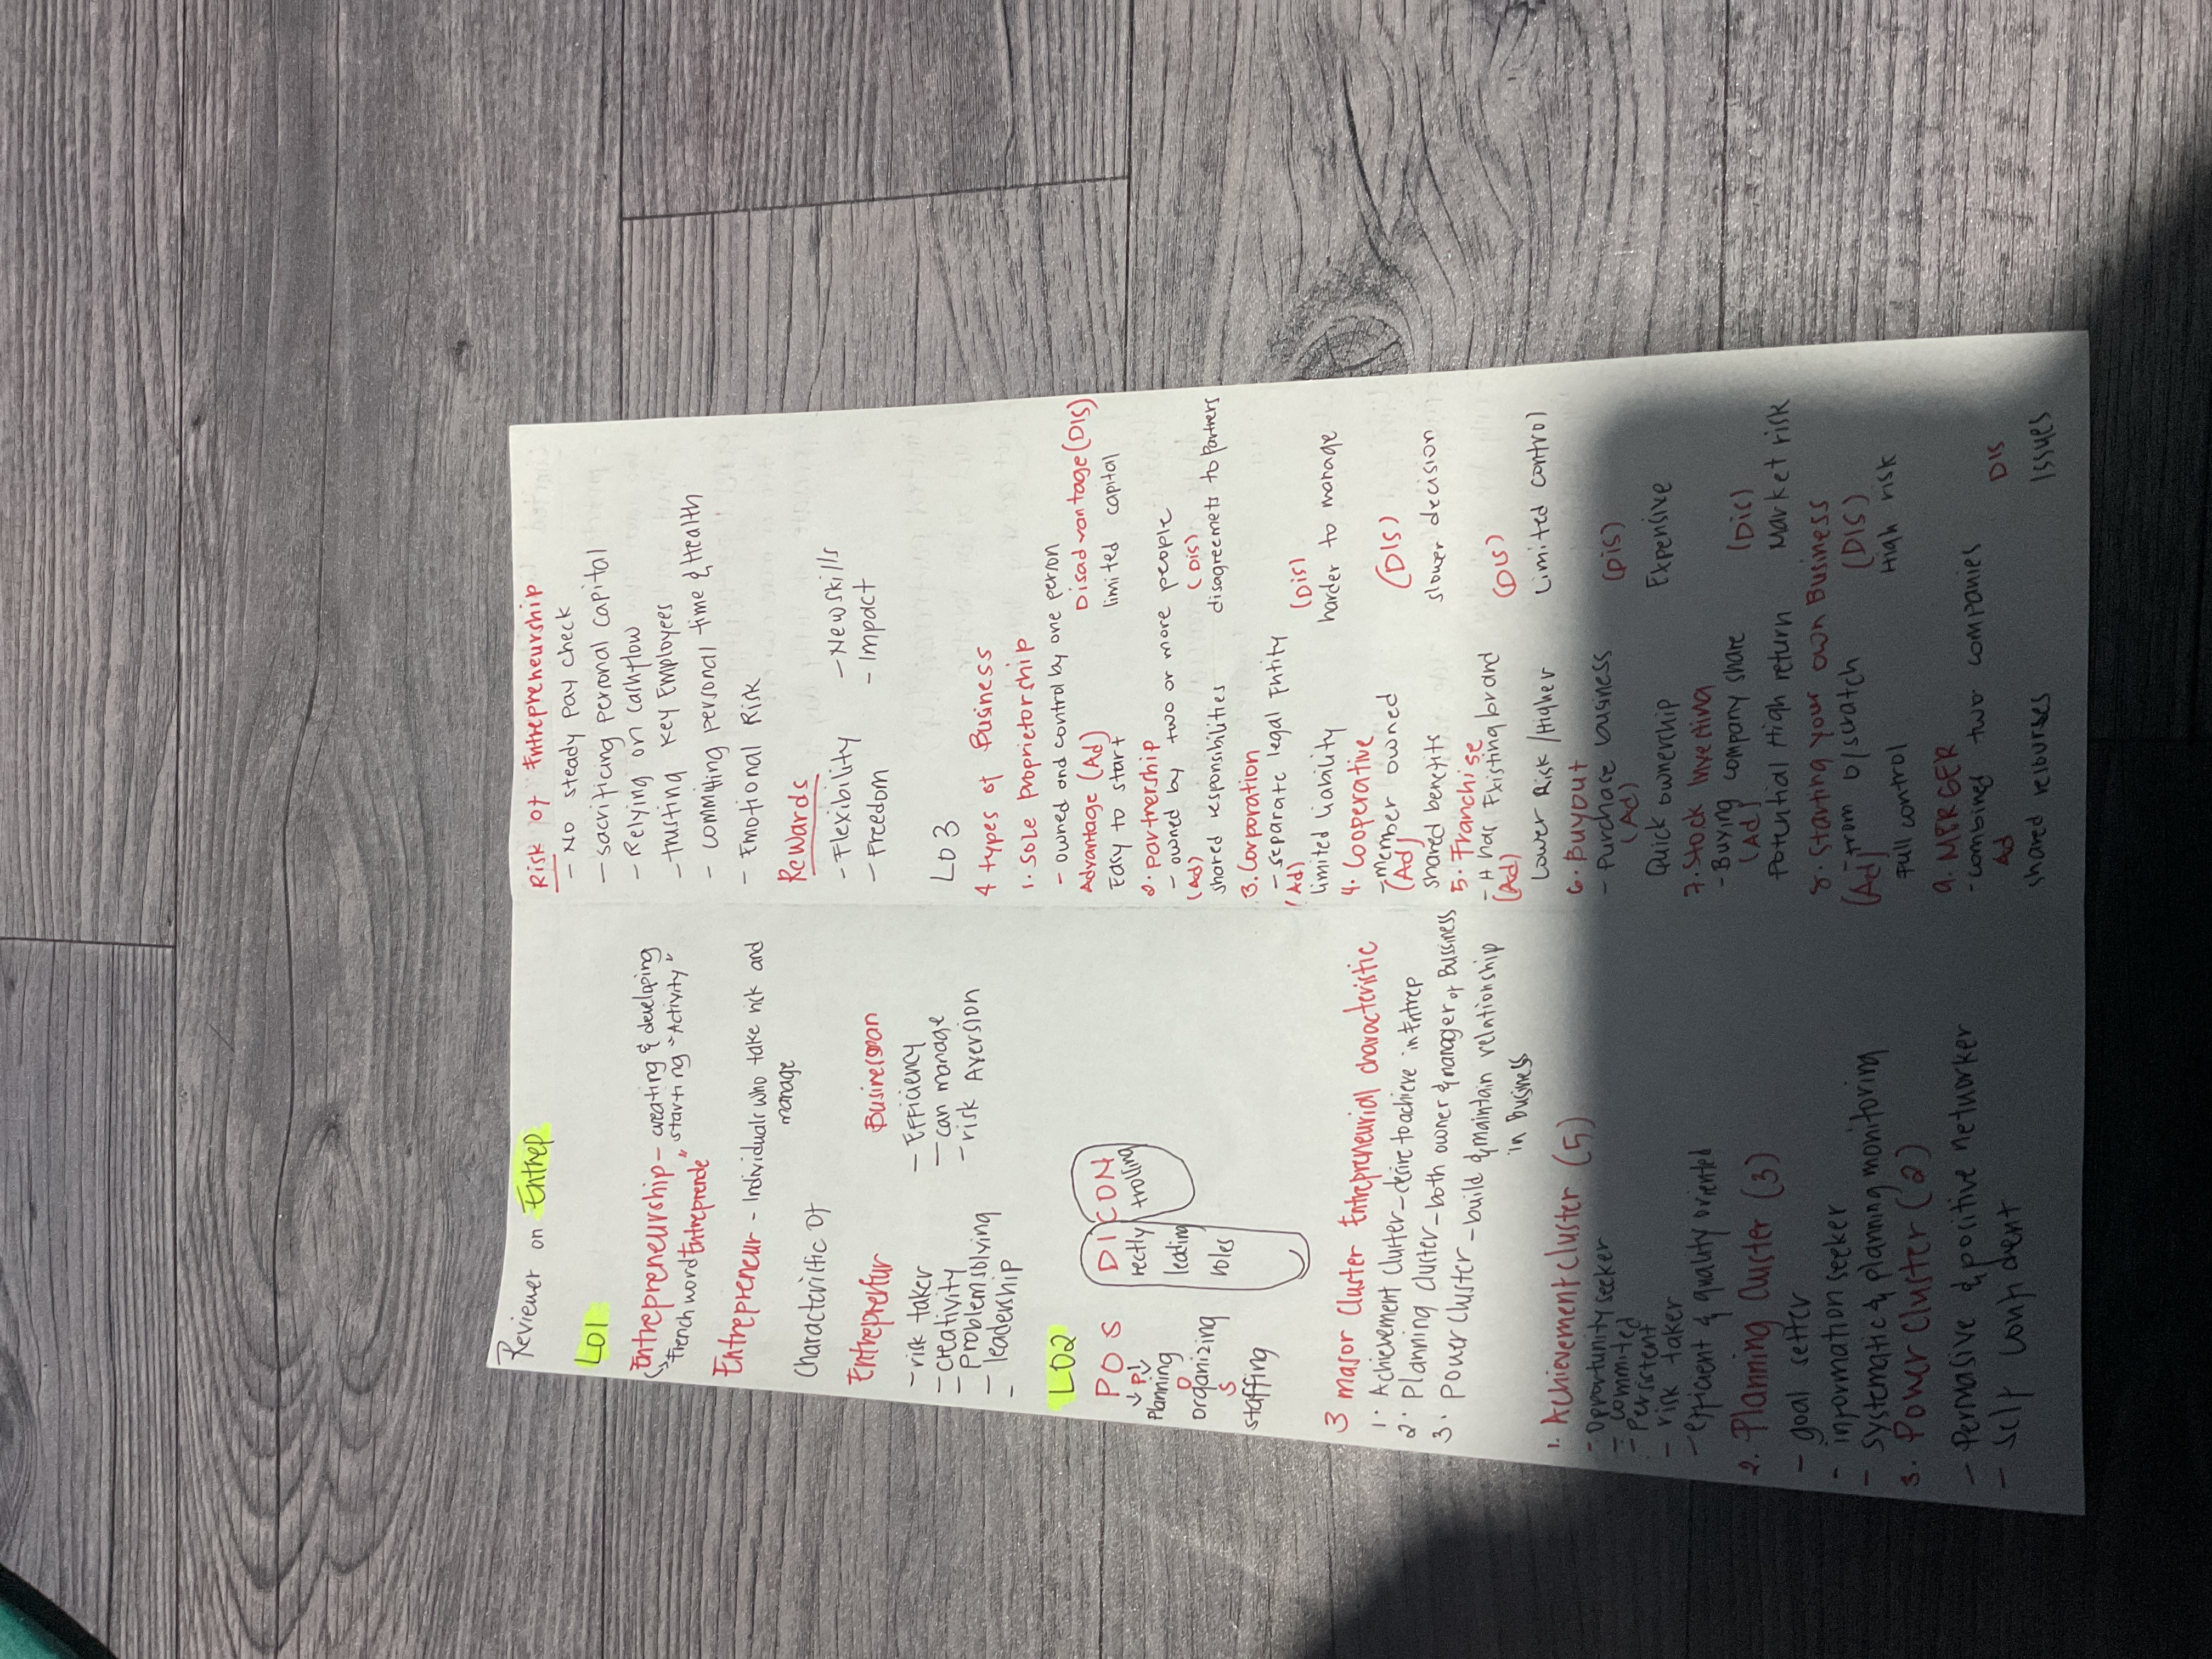 Reviewer on Entrep
LO1
Entrepreneurship - creating & developing
French word "Entreprende" starting "Activity"
Entrepreneur - Individuals who take risk and
manage
Characteristic Of
Entreprenur
- risk taker
- creativity
- problem solving
- leadership
-
Businessman
- Efficiency
- can manage
- risk Aversion
LO2
POS DICON
P
Planning
O
organizing
S
staffing
rectly
leading
roles
trolling
3 major Cluster Entrepreneurial characteristic
1. Achievement Cluster - desire to achieve in Entrep
2. Planning Cluster - both owner & manager of Bussiness
3. Power Cluster - build & maintain relationship
in Business
1. Achievement Cluster (5)
- Opportunity seeker
- Commited
- Persistent
- risk taker
- efficient & quality oriented
2. Planning Cluster (3)
- goal setter
- information seeker
- systematic & planning monitoring
3. Power Cluster (2)
- Persuasive & positive networker
- self confident
Risk of Entrepreneurship
- No steady pay check
- sacrificing personal capital
- Relying on cashflow
- trusting Key Employees
- committing personal time & Health
- Emotional Risk
Rewards
- Flexibility - New skills
- Freedom - Impact
LO3
4 types of Business
1. Sole Proprietorship
- owned and control by one person
Advantage (Ad) Disadvantage (DIS)
Easy to start limited capital
2. partnership
- owned by two or more people
(Ad) (Dis)
shared responsibilities disagreemets to Partners
3. Corporation
- separate legal Entity
(Ad) (Dis)
limited liability harder to manage
4. Cooperative
- member owned
(Ad) (DIS)
shared benefits slower decision
5. Franchise
- It has Existing brand
(Ad) (DIS)
Lower Risk / Higher Limited control
6. Buyout
- Purchase business
(Ad) (DIS)
Quick ownership Expensive
7. Stock Investing
- Buying company share
(Ad) (Dis)
Potential High return Market risk
8. Starting your own Business
- from 0/scratch
(Ad) (DIS)
Full control High risk
9. MERGER
- combines two companies
Ad DIS
shared resourses Issues